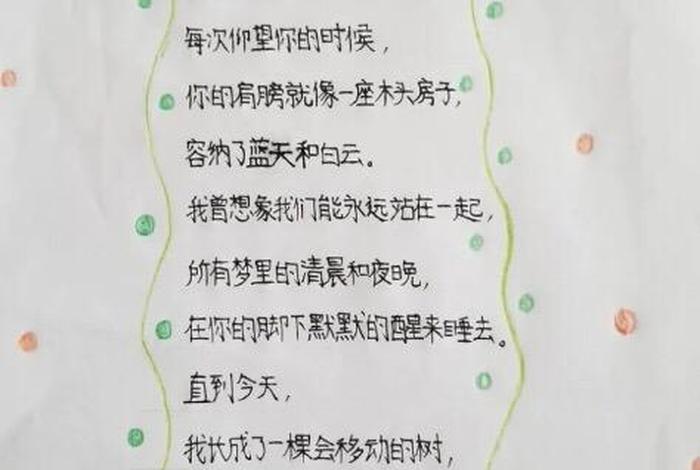 每次仰望你的时候，
你的肩膀就像一座木头房子，
容纳了蓝天和白云。
我曾想象我们能永远站在一起，
所有梦里的清晨和夜晚，
在你的脚下默默的醒来睡去。
直到今天，
我长成了一棵会移动的树，